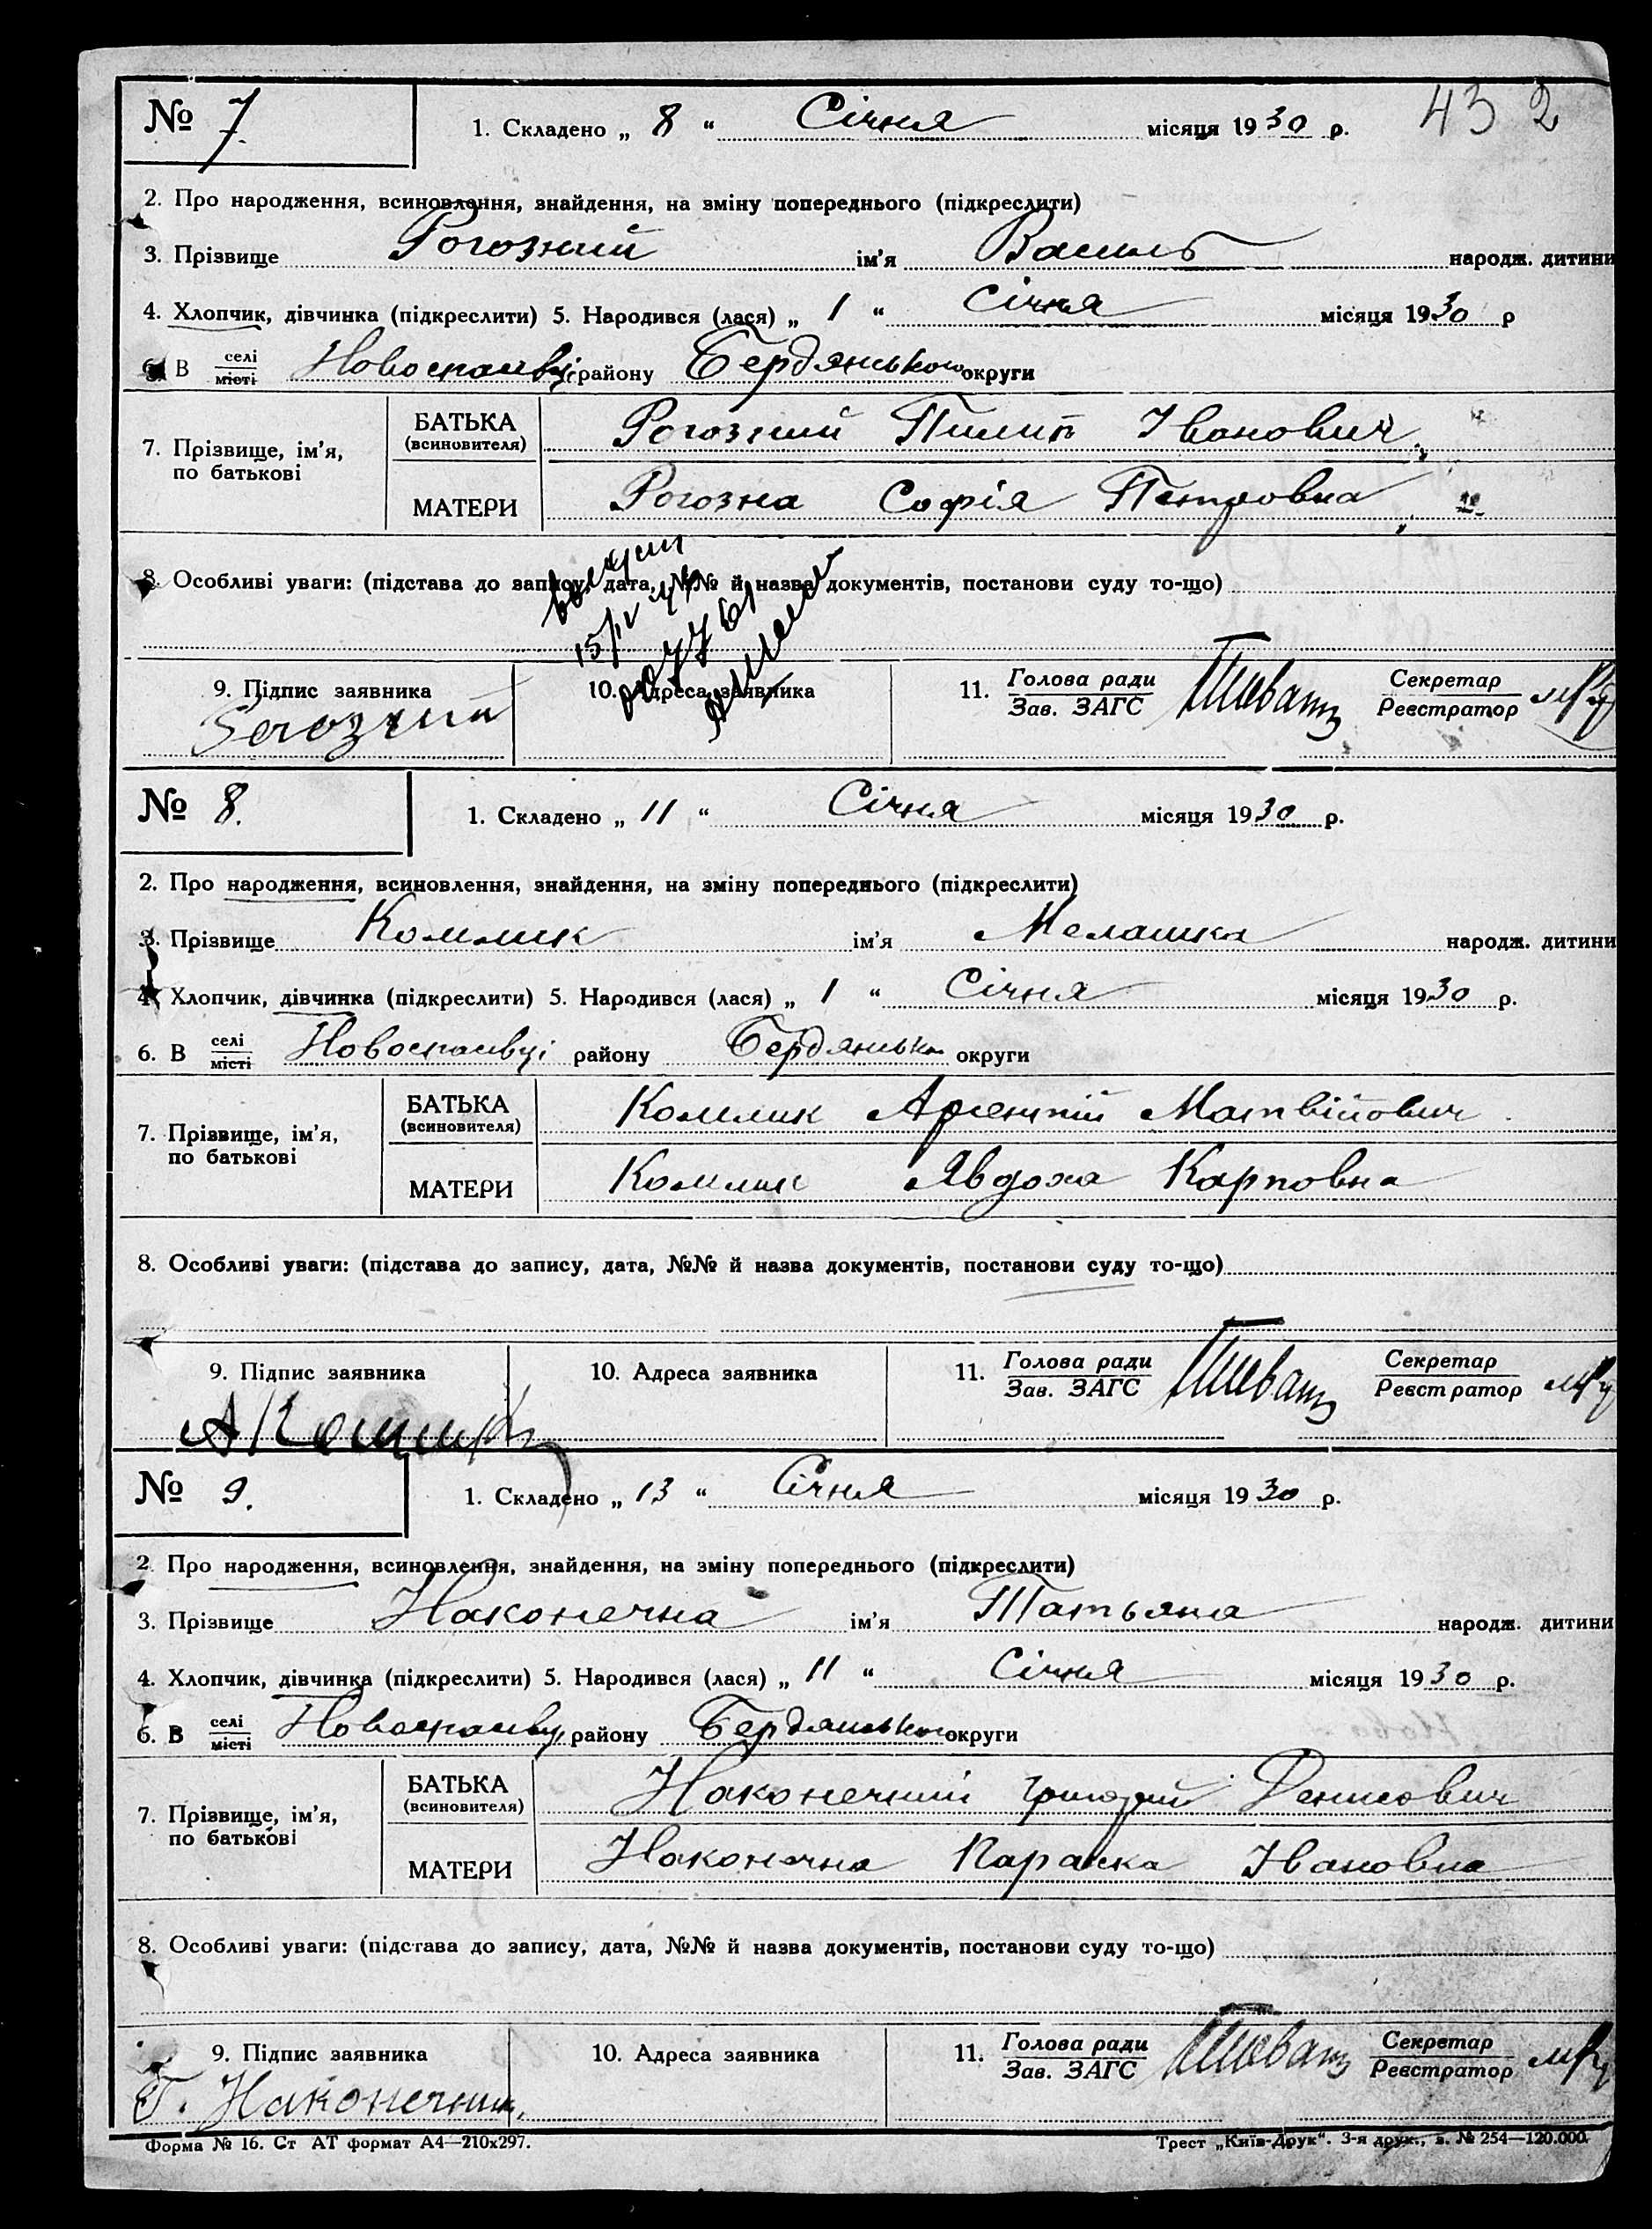 № 7. 1. Складено „ 8 “ Січня місяця 1930 р. 43 2
2. Про народження, всиновлення, знайдення, на зміну попереднього (підкреслити)
3. Прізвище Рогозний ім'я Василь народж. дитини
4. Хлопчик, дівчинка (підкреслити) 5. Народився (лася) „ 1 “ Січня місяця 1930 р
6. В селі місті Новоспаівці району Бердянського округи
7. Прізвище, ім'я, по батькові
БАТЬКА (всиновителя) Рогозний Пилип Іванович
МАТЕРИ Рогозна Софія Петровна
8. Особливі уваги: (підстава до запису, дата, №№ й назва документів, постанови суду то-що)
15/IV
9. Підпис заявника 10. Адреса заявника 11. Голова ради Зав. ЗАГС Секретар Реєстратор
Рогозний
№ 8. 1. Складено „ 11 “ Січня місяця 1930 р.
2. Про народження, всиновлення, знайдення, на зміну попереднього (підкреслити)
3. Прізвище Комлик ім'я Мелашка народж. дитини
4. Хлопчик, дівчинка (підкреслити) 5. Народився (лася) „ 1 “ Січня місяця 1930 р.
6. В селі місті Новоспаівці району Бердянське округи
7. Прізвище, ім'я, по батькові
БАТЬКА (всиновителя) Комлик Арсентій Матвійович
МАТЕРИ Комлик Явдоха Карповна
8. Особливі уваги: (підстава до запису, дата, №№ й назва документів, постанови суду то-що)
9. Підпис заявника 10. Адреса заявника 11. Голова ради Зав. ЗАГС Секретар Реєстратор
№ 9. 1. Складено „ 13 “ Січня місяця 1930 р.
2 Про народження, всиновлення, знайдення, на зміну попереднього (підкреслити)
3. Прізвище Наконечна ім'я Татьяна народж. дитини
4. Хлопчик, дівчинка (підкреслити) 5. Народився (лася) „ 11 “ Січня місяця 1930 р.
6. В селі місті Новоспаівці району Бердянського округи
7. Прізвище, ім'я, по батькові
БАТЬКА (всиновителя) Наконечний Григорій Денисович
МАТЕРИ Наконечна Параска Івановна
8. Особливі уваги: (підстава до запису, дата, №№ й назва документів, постанови суду то-що)
9. Підпис заявника 10. Адреса заявника 11. Голова ради Зав. ЗАГС Секретар Реєстратор
Г. Наконечний
Форма № 16. Ст АТ формат А4—210x297. Трест „Київ-Друк“. 3-я друк., з. № 254—120.000.